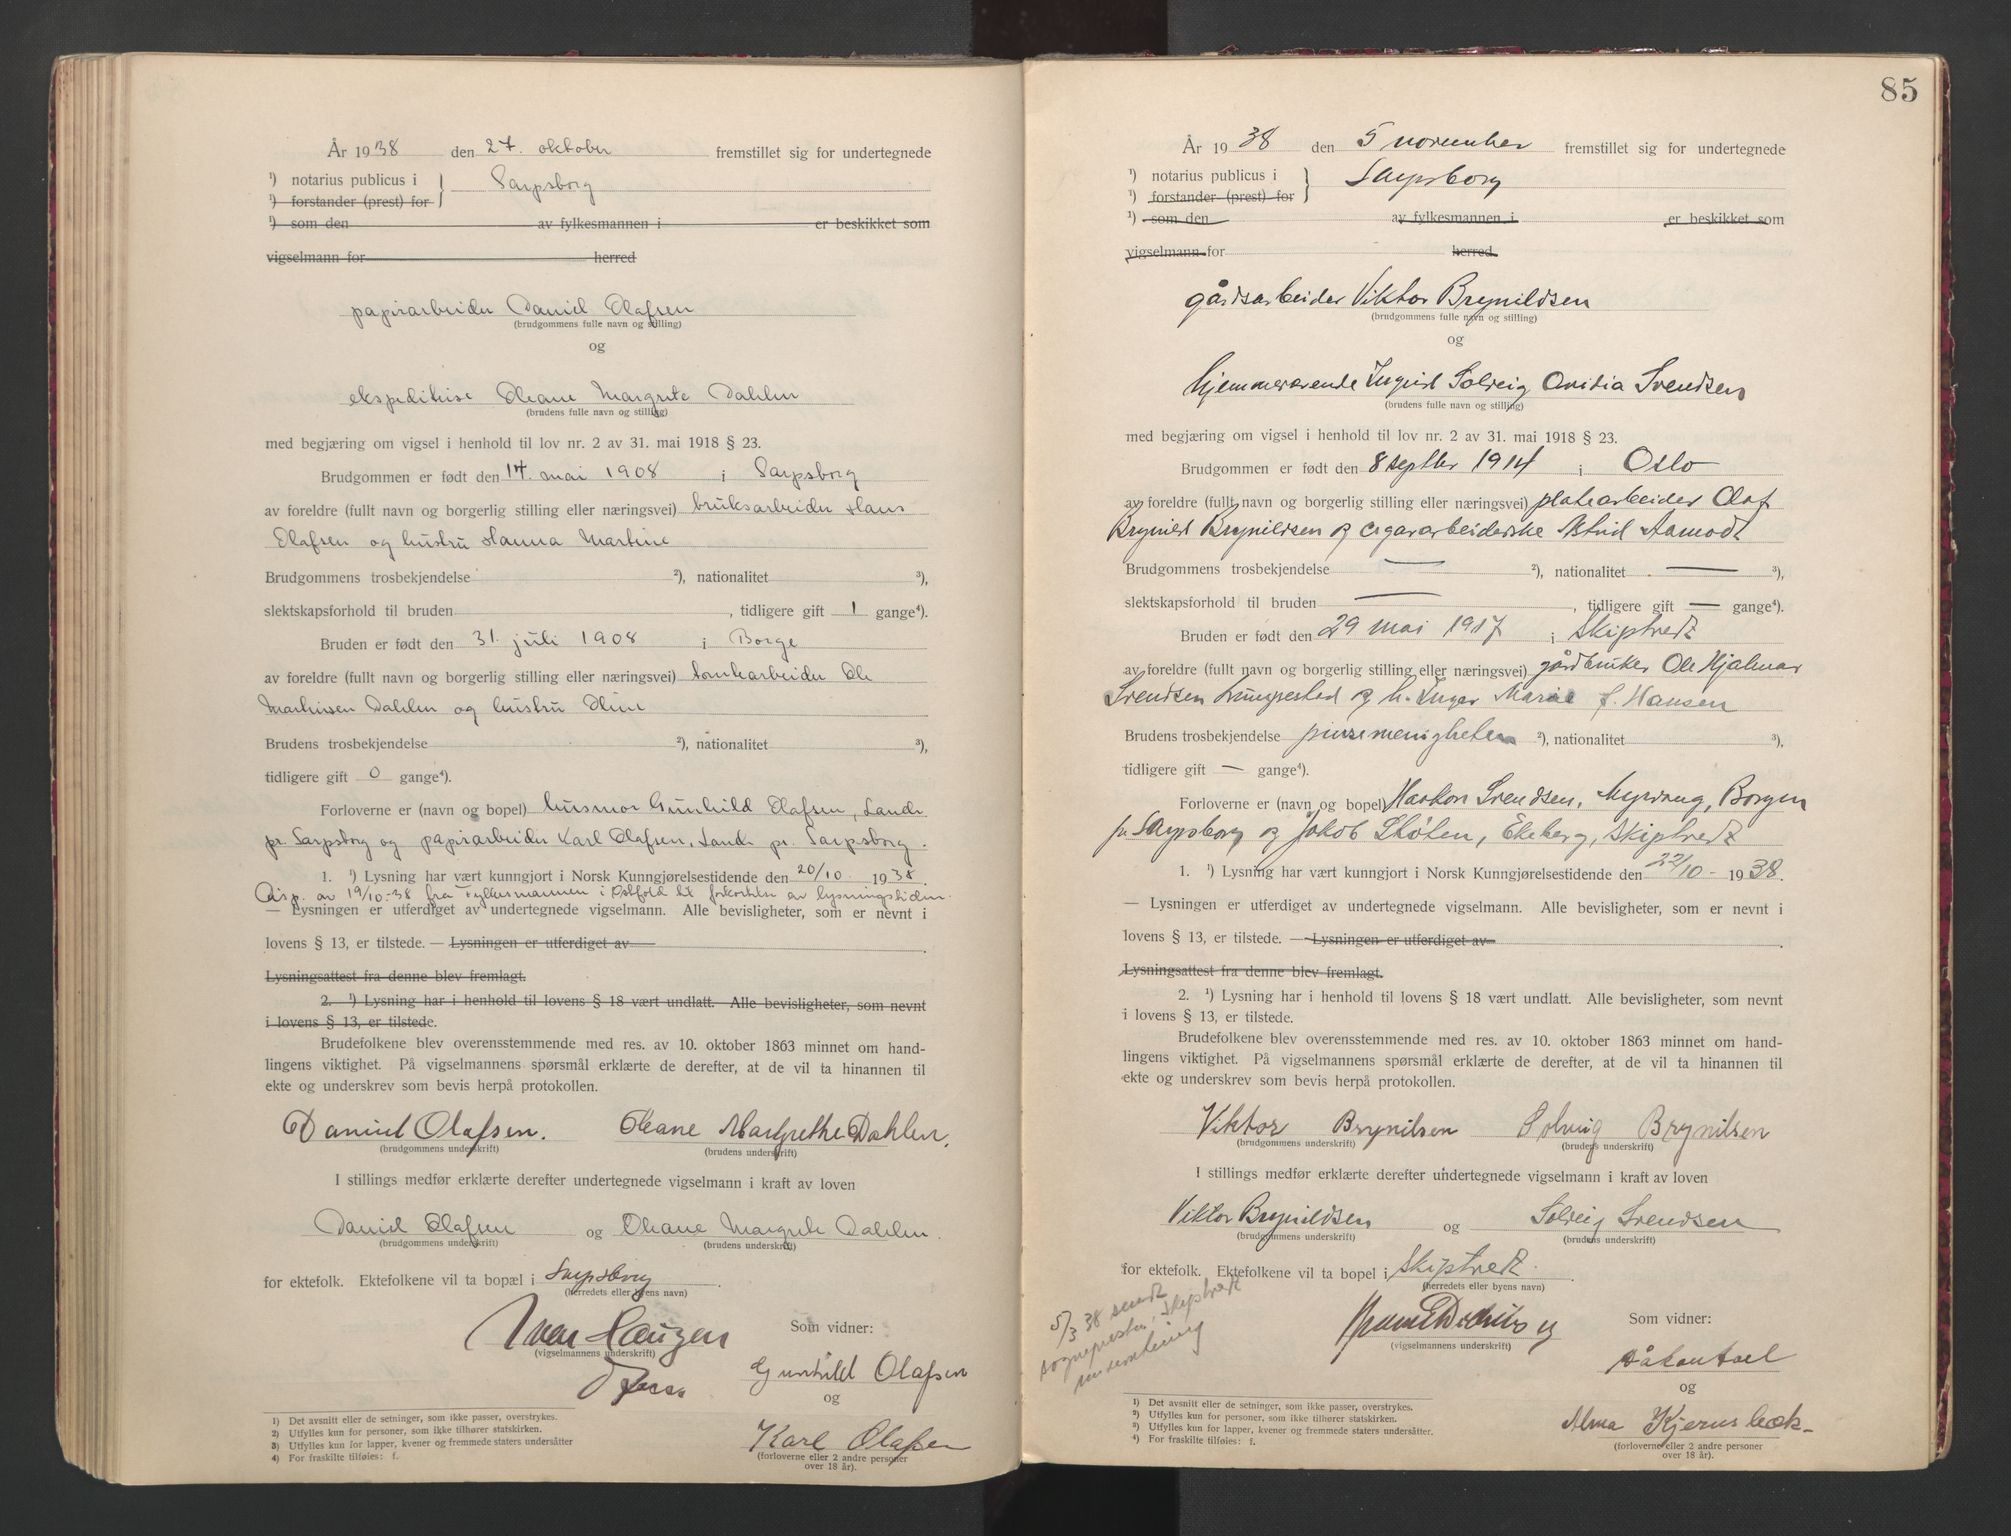 År 1938 den 27. oktober fremstillet sig for undertegnede
¹) notarius publicus i } Sarpsborg
¹) forstander (prest) for
¹) som den av fylkesmannen i er beskikket som
vigselmann for herred
papirarbeider Daniel Olafsen
(brudgommens fulle navn og stilling)
og
ekspeditrise Oleane Margrete Dahlen
(brudens fulle navn og stilling)
med begjæring om vigsel i henhold til lov nr. 2 av 31. mai 1918 § 23.
Brudgommen er født den 14. mai 1908 i Sarpsborg
av foreldre (fullt navn og borgerlig stilling eller næringsvei) bruksarbeider Hans
Olafsen og hustru Hanna Martine
Brudgommens trosbekjendelse ²), nationalitet ³),
slektskapsforhold til bruden , tidligere gift 1 gange⁴).
Bruden er født den 31. juli 1908 i Borge
av foreldre (fullt navn og borgerlig stilling eller næringsvei) tomtearbeider Ole
Mathisen Dahlen og hustru Oline
Brudens trosbekjendelse ²), nationalitet ³),
tidligere gift 0 gange⁴).
Forloverne er (navn og bopel) husmor Gunhild Olafsen, Lande
pr. Sarpsborg og papirarbeider Karl Olafsen, Lande pr. Sarpsborg.
1. ¹) Lysning har vært kunngjort i Norsk Kunngjørelsestidende den 20/10 1938.
Disp. av 19/10-38 fra Fylkesmannen i Østfold til forkortelse av lysningstiden.
— Lysningen er utferdiget av undertegnede vigselmann. Alle bevisligheter, som er nevnt i
lovens § 13, er tilstede. — Lysningen er utferdiget av
Lysningsattest fra denne blev fremlagt.
2. ¹) Lysning har i henhold til lovens § 18 vært undlatt. Alle bevisligheter, som nevnt
i lovens § 13, er tilstede.
Brudefolkene blev overensstemmende med res. av 10. oktober 1863 minnet om hand-
lingens viktighet. På vigselmannens spørsmål erklærte de derefter, at de vil ta hinannen til
ekte og underskrev som bevis herpå protokollen.
Daniel Olafsen. Oleane Margrethe Dahlen.
(brudgommens underskrift) (brudens underskrift)
I stillings medfør erklærte derefter undertegnede vigselmann i kraft av loven
Daniel Olafsen og Oleane Margrete Dahlen.
(brudgommens underskrift) (brudens underskrift)
for ektefolk. Ektefolkene vil ta bopæl i Sarpsborg.
(herredets eller byens navn)
Ivar Haugen Som vidner:
(vigselmannens underskrift)
Gunhild Olafsen
og
Karl Olafsen
(forloverne eller 2 andre personer
over 18 år).
1) Det avsnitt eller de setninger, som ikke passer, overstrykes.
2) Utfylles kun for personer, som ikke tilhører statskirken.
3) Utfylles kun for lapper, kvener og fremmede staters undersåtter
4) For fraskilte tilføies: f.
85
År 1938 den 5 november fremstillet sig for undertegnede
¹) notarius publicus i } Sarpsborg
¹) forstander (prest) for
¹) som den av fylkesmannen i er beskikket som
vigselmann for herred
gårdsarbeider Viktor Brynildsen
(brudgommens fulle navn og stilling)
og
hjemmeværende Ingrid Solveig Ovidia Svendsen
(brudens fulle navn og stilling)
med begjæring om vigsel i henhold til lov nr. 2 av 31. mai 1918 § 23.
Brudgommen er født den 8 septbr 1914 i Oslo
av foreldre (fullt navn og borgerlig stilling eller næringsvei) platearbeider Olaf
Brynild Brynildsen og cigararbeiderske Astrid Aamodt
Brudgommens trosbekjendelse — ²), nationalitet — ³),
slektskapsforhold til bruden — , tidligere gift — gange⁴).
Bruden er født den 29 mai 1917 i Skiptvedt
av foreldre (fullt navn og borgerlig stilling eller næringsvei) gårdbruker Ole Hjalmar
Svendsen Lungestad og h. Inger Marie f. Hansen
Brudens trosbekjendelse pinsemenigheten ²), nationalitet ³),
tidligere gift — gange⁴).
Forloverne er (navn og bopel) Haakon Svendsen, Borgen
pr. Sarpsborg og Jakob Stølen, Ekeberg, Skiptvedt
1. ¹) Lysning har vært kunngjort i Norsk Kunngjørelsestidende den 22/10 - 1938.
— Lysningen er utferdiget av undertegnede vigselmann. Alle bevisligheter, som er nevnt i
lovens § 13, er tilstede. — Lysningen er utferdiget av
Lysningsattest fra denne blev fremlagt.
2. ¹) Lysning har i henhold til lovens § 18 vært undlatt. Alle bevisligheter, som nevnt
i lovens § 13, er tilstede.
Brudefolkene blev overensstemmende med res. av 10. oktober 1863 minnet om hand-
lingens viktighet. På vigselmannens spørsmål erklærte de derefter, at de vil ta hinannen til
ekte og underskrev som bevis herpå protokollen.
Viktor Brynilsen Solveig Brynilsen
(brudgommens underskrift) (brudens underskrift)
I stillings medfør erklærte derefter undertegnede vigselmann i kraft av loven
Viktor Brynildsen og Solveig Svendsen
(brudgommens underskrift) (brudens underskrift)
for ektefolk. Ektefolkene vil ta bopel i Skiptvedt.
(herredets eller byens navn)
5/3 38 sendt
sognepresten, Skiptvedt
underretning
Som vidner:
(vigselmannens underskrift)
og
Alma Kjernsbæk-
(forloverne eller 2 andre personer
over 18 år).
¹) Det avsnitt eller de setninger, som ikke passer, overstrykes.
²) Utfylles kun for personer, som ikke tilhører statskirken.
³) Utfylles kun for lapper, kvener og fremmede staters undersåtter.
⁴) For fraskilte tilføies: f.